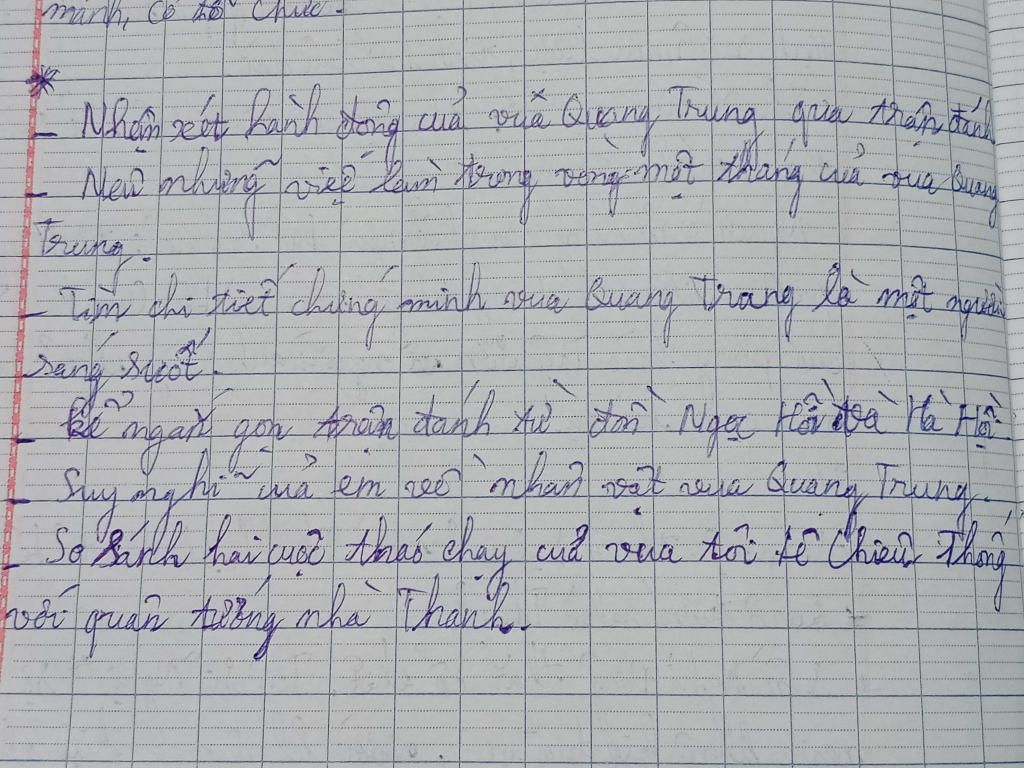 mạnh, có tổ chức.
*
- Nhận xét hành động của vua Quang Trung qua trận đánh
- Nêu những việc làm trong vòng một tháng của vua Quang
Trung.
- Tìm chi tiết chứng minh vua Quang Trang là một người
sáng suốt.
- Kể ngắn gọn trận đánh từ đồn Ngọc Hồi và Hà Hồi.
- Suy nghĩ của em về nhân vật vua Quang Trung.
- So sánh hai cuộc tháo chạy của vua tôi Lê Chiêu Thống
với quân tướng nhà Thanh.